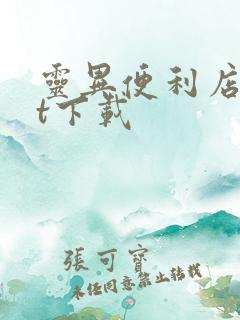 靈異便利店
t下載
張可寶
未經同意禁止轉載